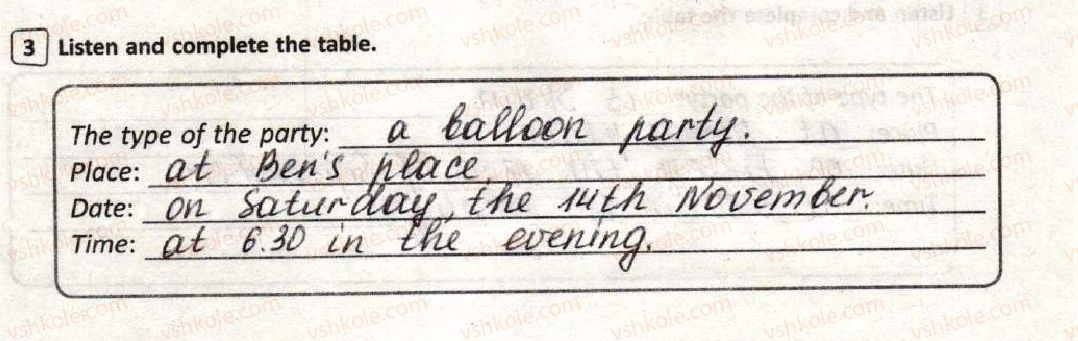 3 Listen and complete the table.
The type of the party: a balloon party.
Place: at Ben's place
Date: on Saturday, the 14th November.
Time: at 6.30 in the evening.